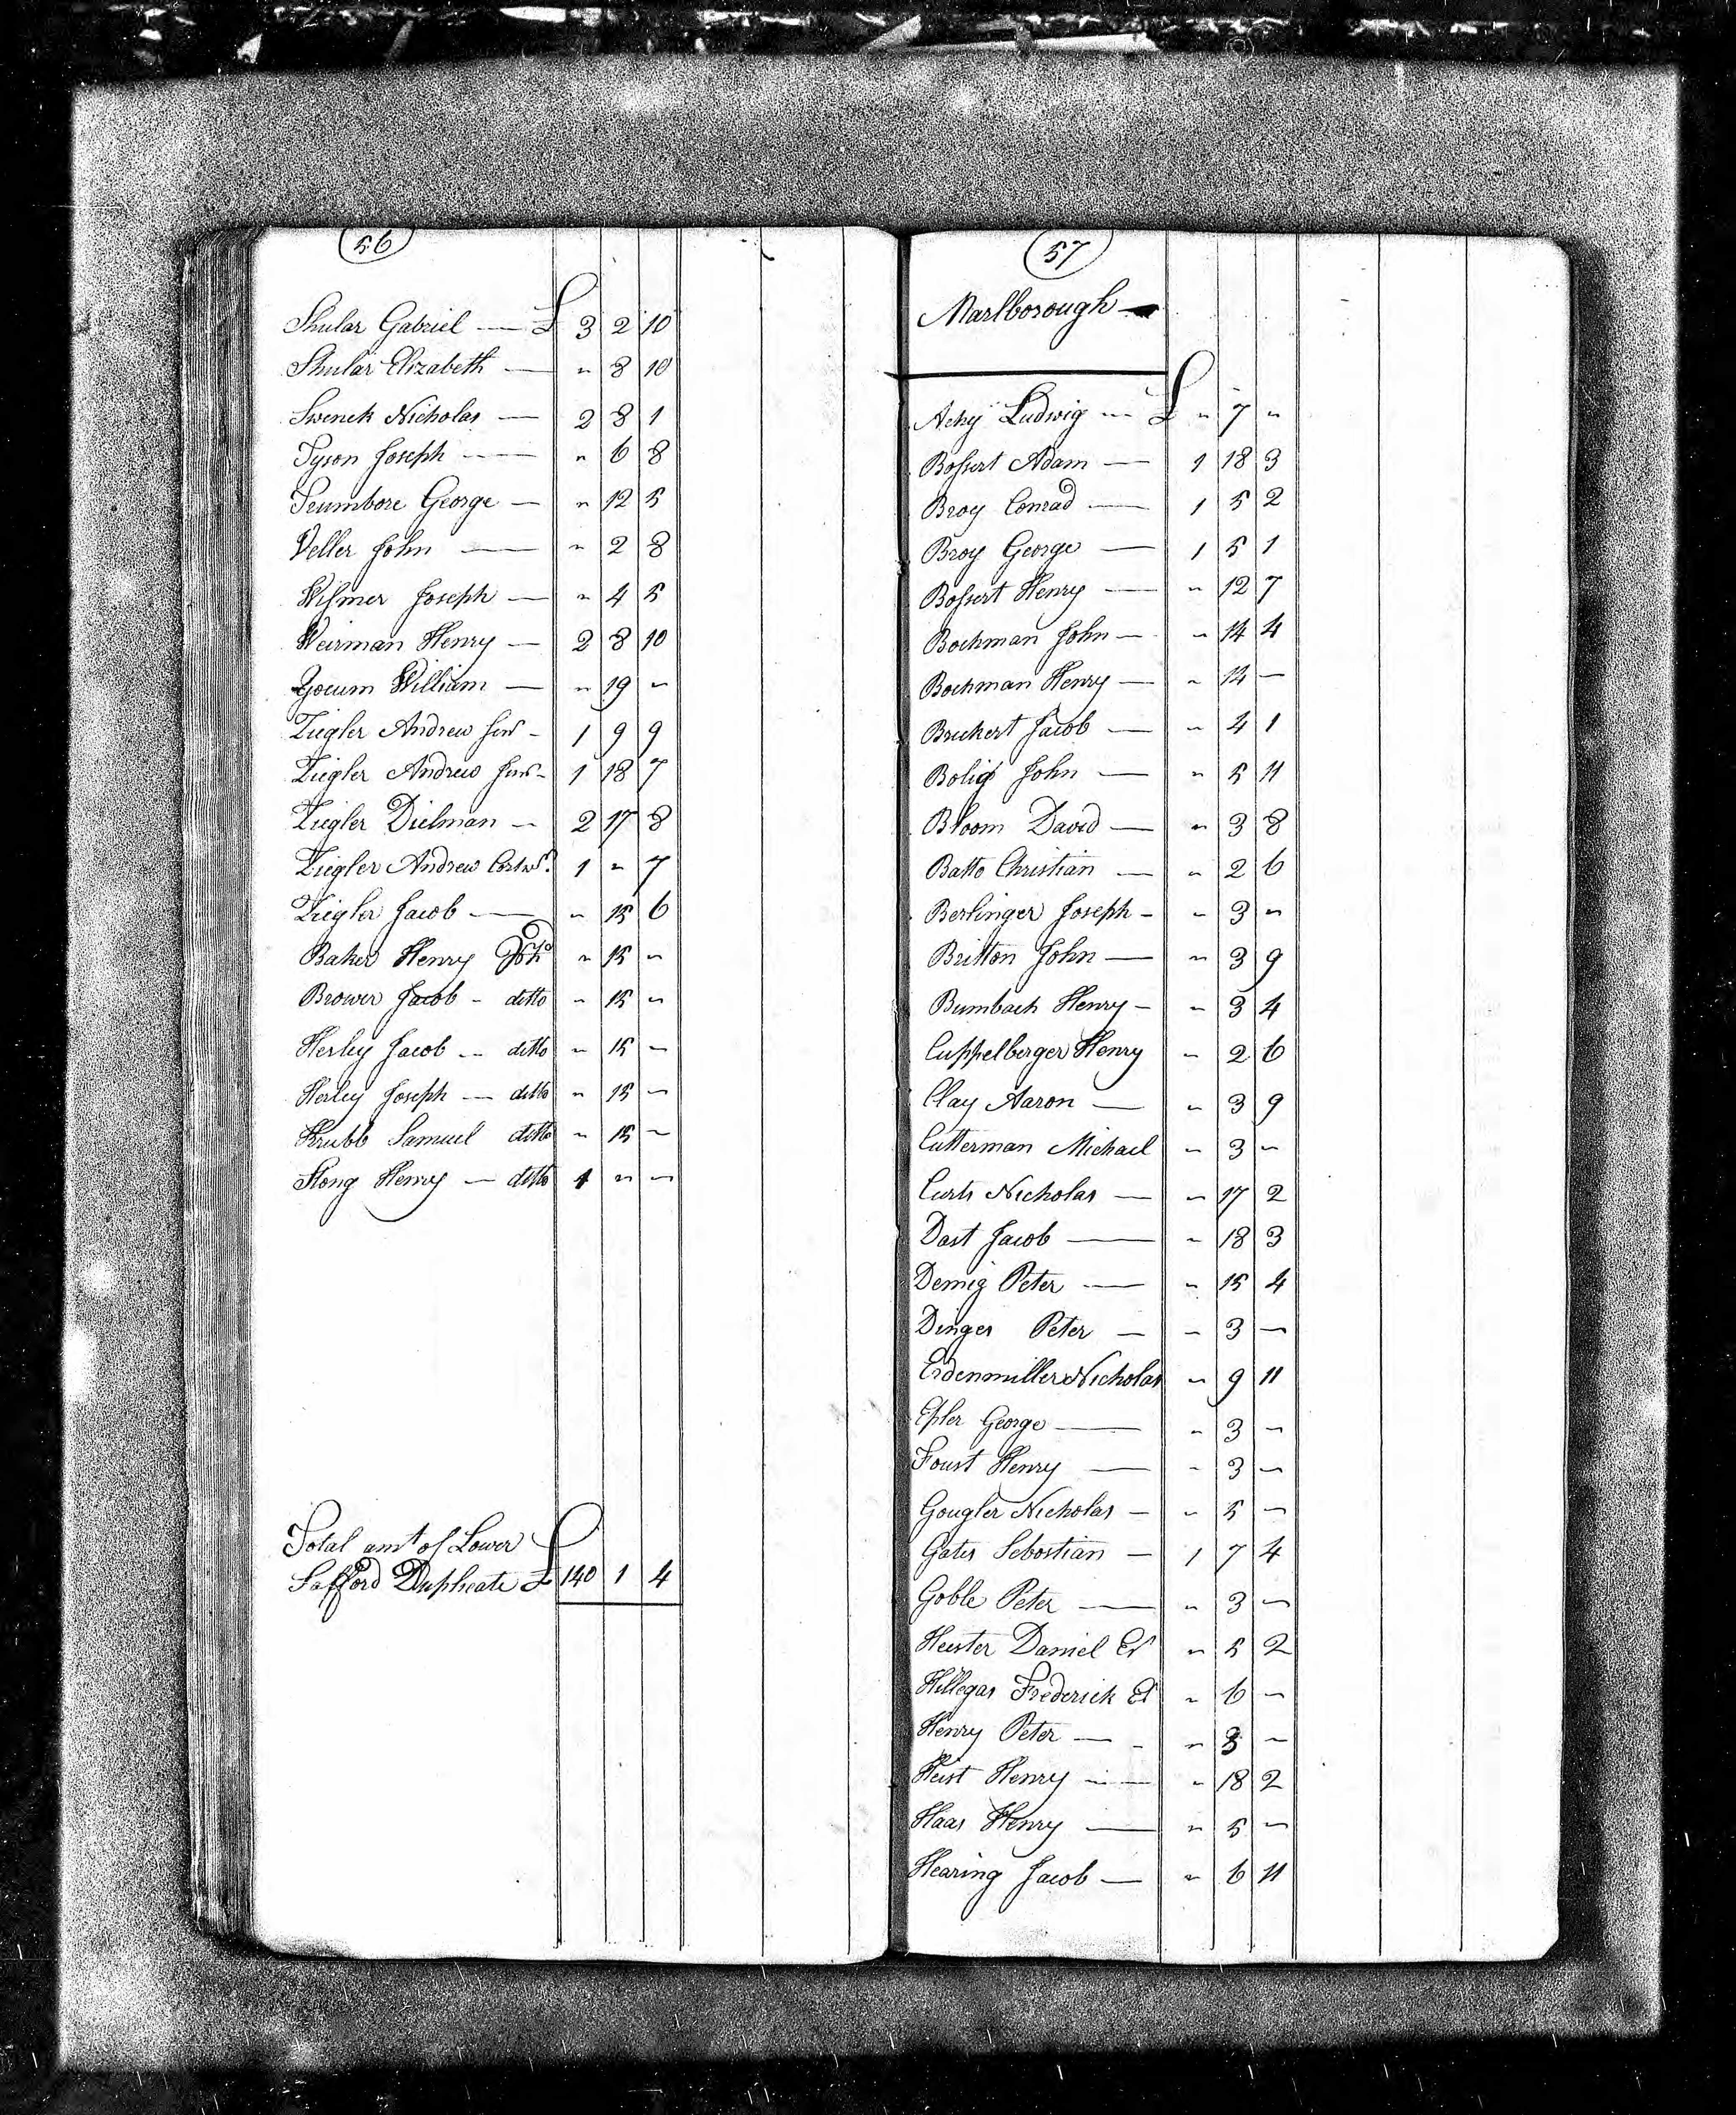 56
Shular Gabriel — £ 3 2 10
Shular Elizabeth — " 8 10
Swenck Nicholas — 2 8 1
Tyson Joseph — " 6 8
Trumbore George — " 12 5
Veller John — " 2 8
Wismer Joseph — " 4 5
Weirman Henry — 2 8 10
Yocum William — " 19 "
Ziegler Andrew Senr - 1 9 9
Ziegler Andrew Junr - 1 18 7
Ziegler Dielman — 2 17 8
Ziegler Andrew 1 " 7
Ziegler Jacob — " 15 6
Baker Henry " 15 "
Brower Jacob - ditto " 15 "
Herley Jacob — ditto " 15 "
Herley Joseph — ditto " 15 "
Krubb Samuel ditto " 15 "
Hong Henry — ditto 1 " "
Total amt of Lower
Salford Duplicate £ 140 1 4
57
Marlborough —
Achy Ludwig — £ " 7 "
Bossert Adam — 1 18 3
Broy Conrad — 1 5 2
Broy George — 1 5 1
Bossert Henry — " 12 7
Bochman John — " 14 4
Bochman Henry — " 14 —
Bruckert Jacob — " 4 1
Bolig John — " 5 11
Bloom David — " 3 8
Batto Christian — " 2 6
Berlinger Joseph - " 3 "
Britton John — " 3 9
Bumbach Henry - " 3 4
Cuppelberger Henry " 2 6
Clay Aaron — " 3 9
Cutterman Michael " 3 "
Curts Nicholas — " 17 2
Dast Jacob — " 18 3
Demig Peter — " 15 4
Dinger Peter — " 3 —
Erdenmiller Nicholas " 9 11
Esler George — " 3 —
Foust Henry — " 3 —
Gougler Nicholas — " 5 —
Gater Sebostian — 1 7 4
Goble Peter — " 3 —
Heister Daniel Et " 5 2
Hillegas Frederick Et " 6 —
Henry Peter — " 3 —
Heist Henry — " 18 2
Haas Henry — " 5 —
Hearing Jacob — " 6 11